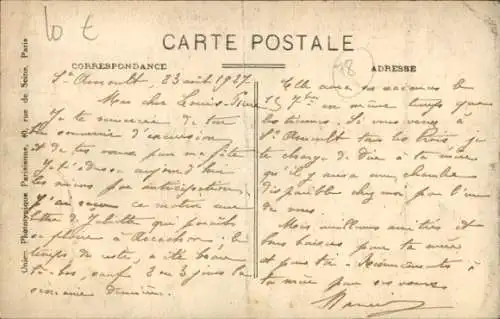 10 €
CARTE POSTALE
18
CORRESPONDANCE
ADRESSE
Unión Phototypique Parisienne, 69, rue de Seine, Paris
St Arnoult, 23 août 1927
Mon cher Louis
Je te remercie de ton
souvenir d'excursion
et de tes vœux pour ma fête
Je t'adresse aujourd'hui
les miens par anticipation.
J'ai reçu ce matin une
lettre de Juliette qui
se plaire à Arcachon; le
temps de reste, a été beau
là-bas, sauf 2 ou 3 jours la
semaine dernière.
Elle aura ses vacances le
15 7bre en même temps que
les tiennes. Si vous venez à
St Arnoult tous les trois, je
te charge de dire à ta mère
qu'il y aura une chambre
disponible chez moi pour l'un
de vous.
Mes meilleures amitiés et
bons baisers pour ta mère
et pour toi. Remerciements à
ta mère pour ses vœux